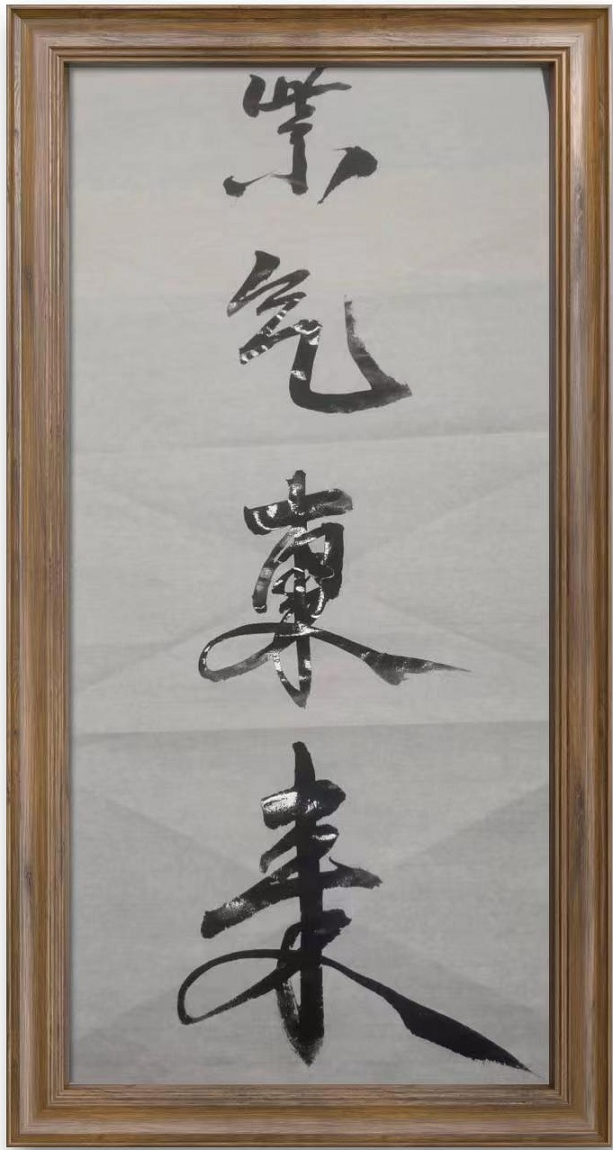 紫气東来